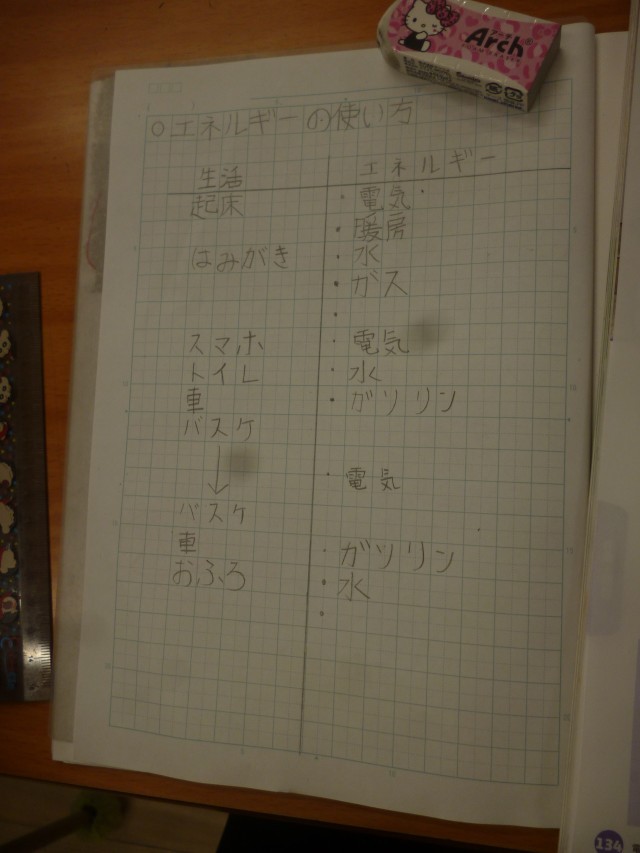 Arch
○エネルギーの使い方
生活 エネルギー
起床 ・電気
・暖房
はみがき ・水
・ガス
・
スマホ ・電気
トイレ ・水
車 ・ガソリン
バスケ
↓ ・電気
バスケ
車 ・ガソリン
おふろ ・水
・
134